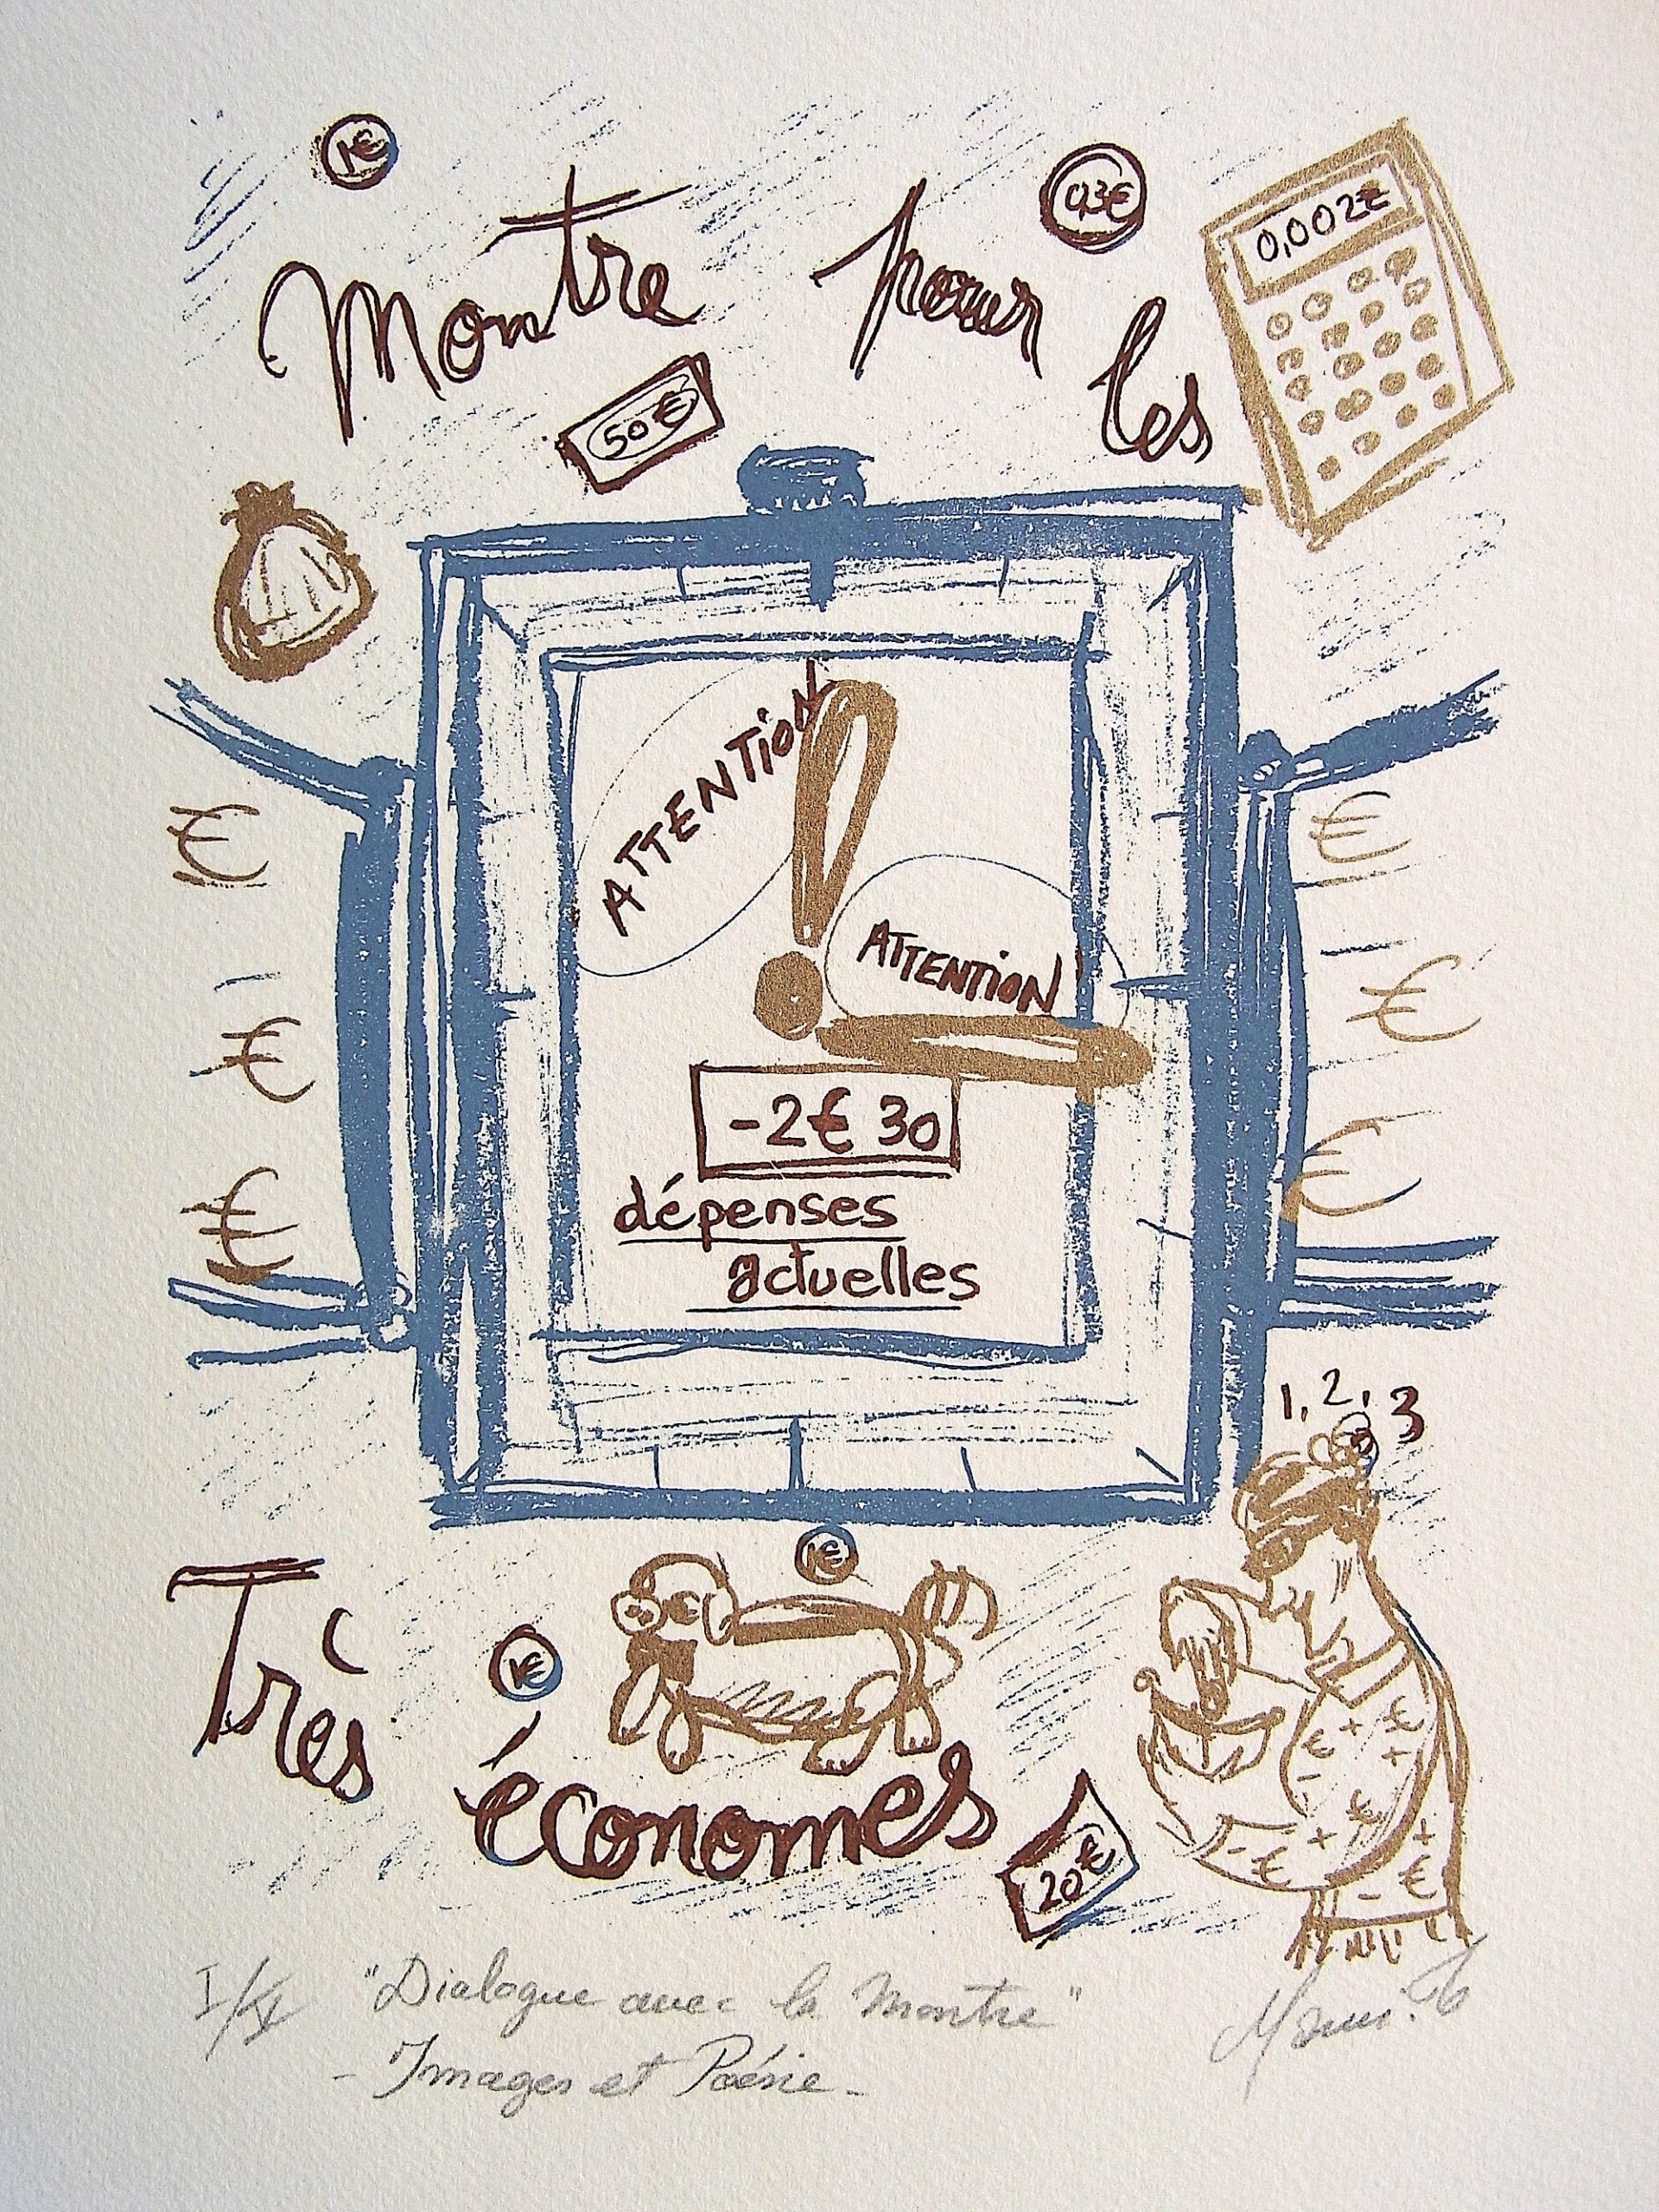 1€
0,3€
0,002€
Montre pour les
50€
ATTENTION
ATTENTION
-2€ 30
dépenses
actuelles
€
€
€
€
€
€
1, 2, 3
1€
1€
Très économes
20€
€ + €
+
-
€
- € + +
- €
"Dialogue avec la Montre"
- Images et Poésie -